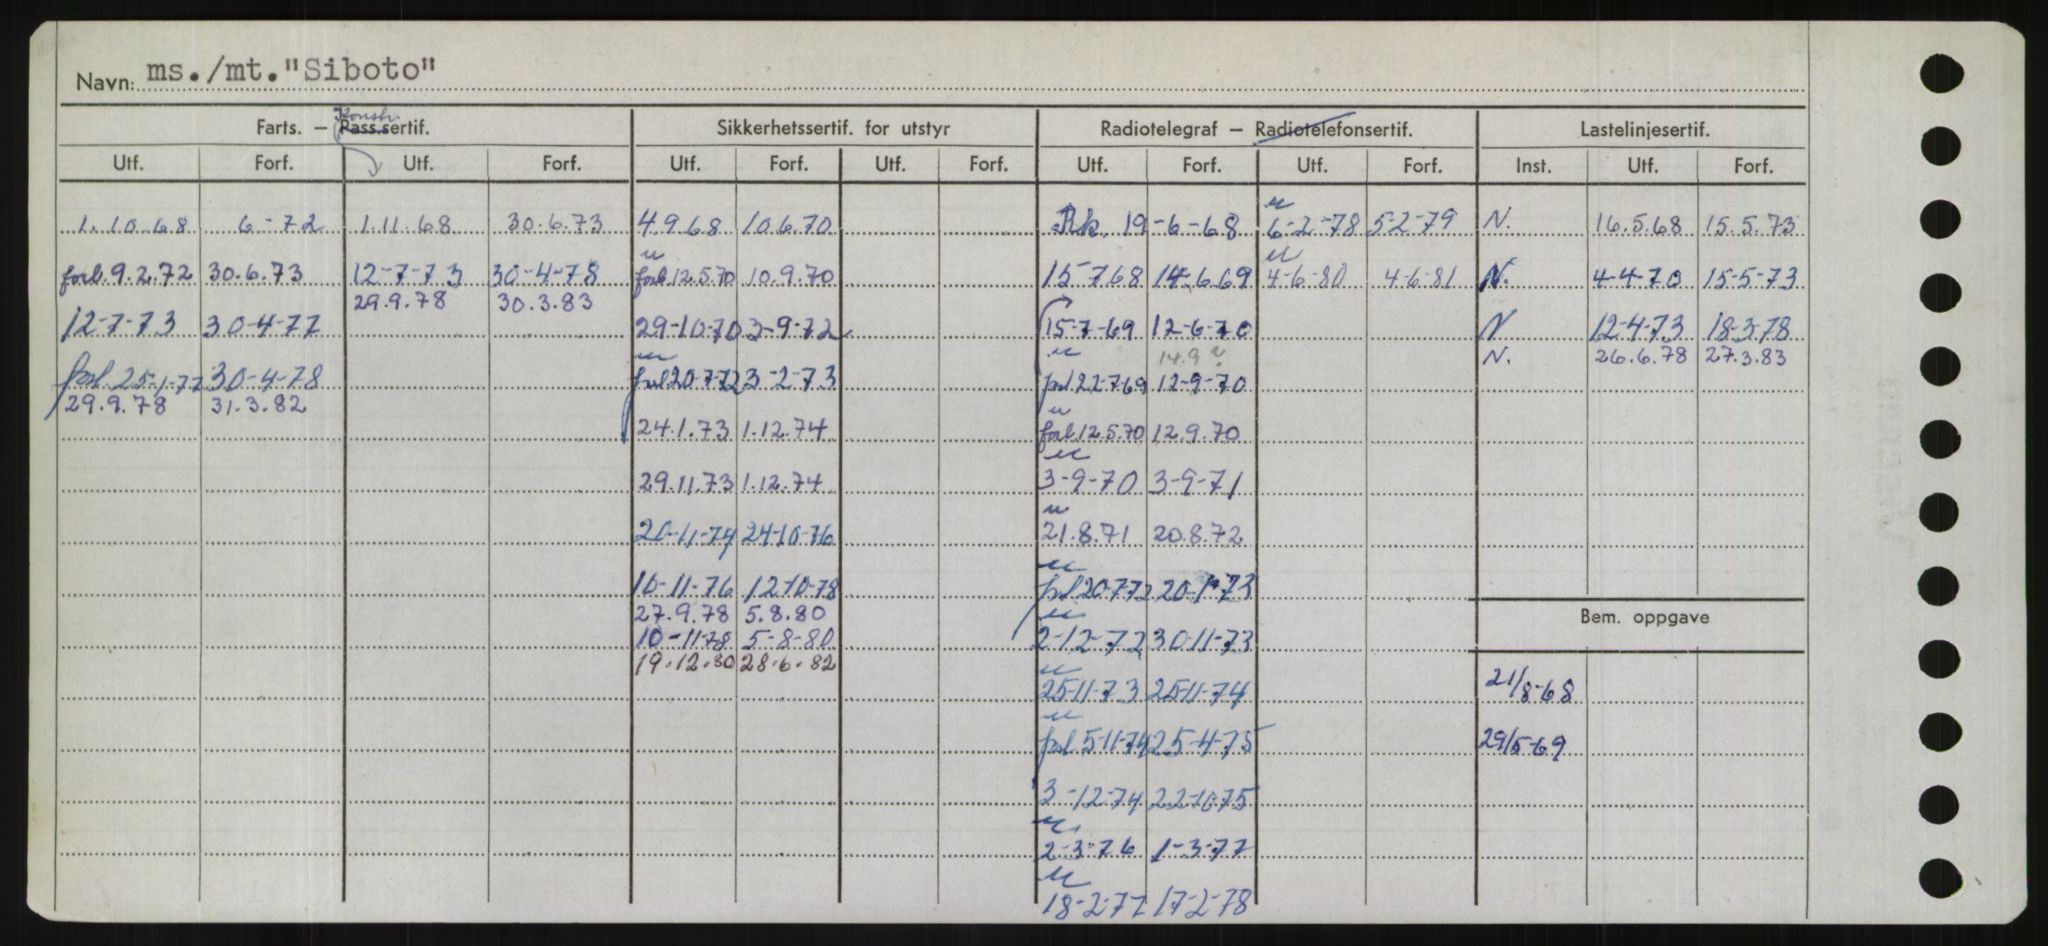 Navn: ms./mt."Siboto"
Konstr.
Farts. – Pass.sertif. Sikkerhetssertif. for utstyr Radiotelegraf – Radiotelefonsertif. Lastelinjesertif.
Utf. Forf. Utf. Forf. Utf. Forf. Utf. Forf. Utf. Forf. Utf. Forf. Inst. Utf. Forf.
1.10.68 6-72 1.11.68 30.6.73 4.9.68 10.6.70 Rk. 19-6-68 6-2-78 5-2-79 N. 16.5.68 15.5.73
forl. 9.2.72 30.6.73 12-7-73 30-4-78 forl 12.5.70 10.9.70 15-7.68 14-6.69 4-6-80 4-6.81 N. 4-4-70 15-5-73
29.9.78 30.3.83
12-7-73 30-4-77 29-10-70 3-9-72 15-7-69 12-6-70 N 12-4-73 18-3-78
14.9 ? N. 26.6.78 27.3.83
forl. 25-1-77 30-4-78 forl 20-7-72 3-2-73 forl 22-7-69 12-9-70
29.9.78 31.3.82
24.1.73 1.12.74 forl 12.5.70 12.9.70
29.11.73 1.12.74 3-9-70 3-9-71
20-11-74 24-10-76 21.8.71 20.8.72
10-11-76 12-10-78 forl 20-7-72 20-1-73
27.9.78 5.8.80 Bem. oppgave
10-11-78 5-8-80 2-12-72 30-11-73
19.12.80 28.6.82
25-11-73 25-11-74 21/8-68
forl 5-11-74 25-4-75 29/5-69
3-12-74 22-10-75
2-3-76 1-3-77
18-2-77 17-2-78